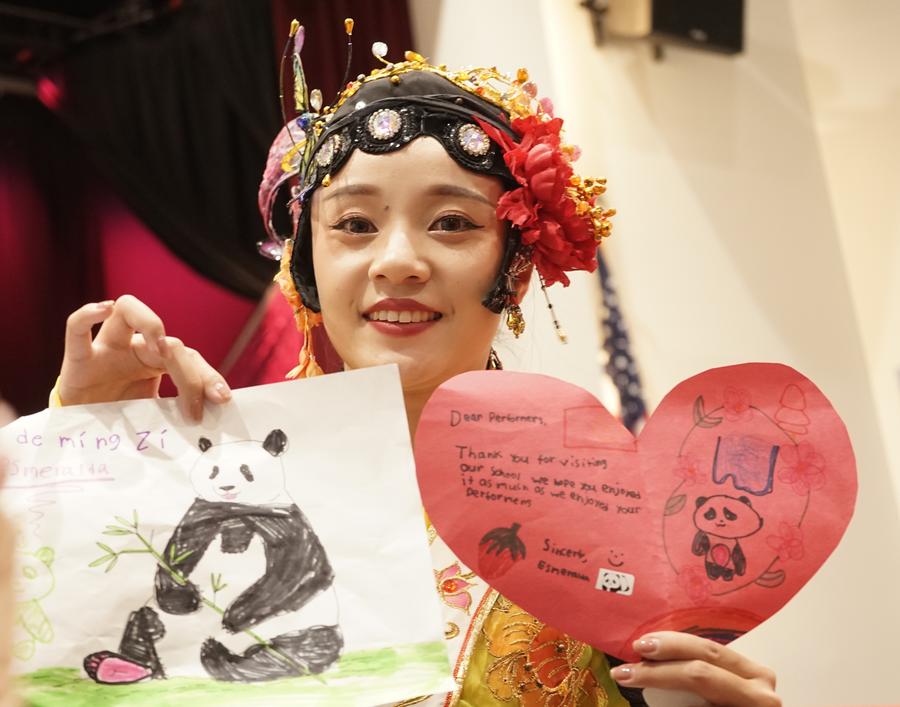 de míng Zí
Smeralda
Dear Performers,
Thank you for visiting
our school we hope you enjoyed
it as much as we enjoyed your
Performens
Sincerly,
Esmeralda